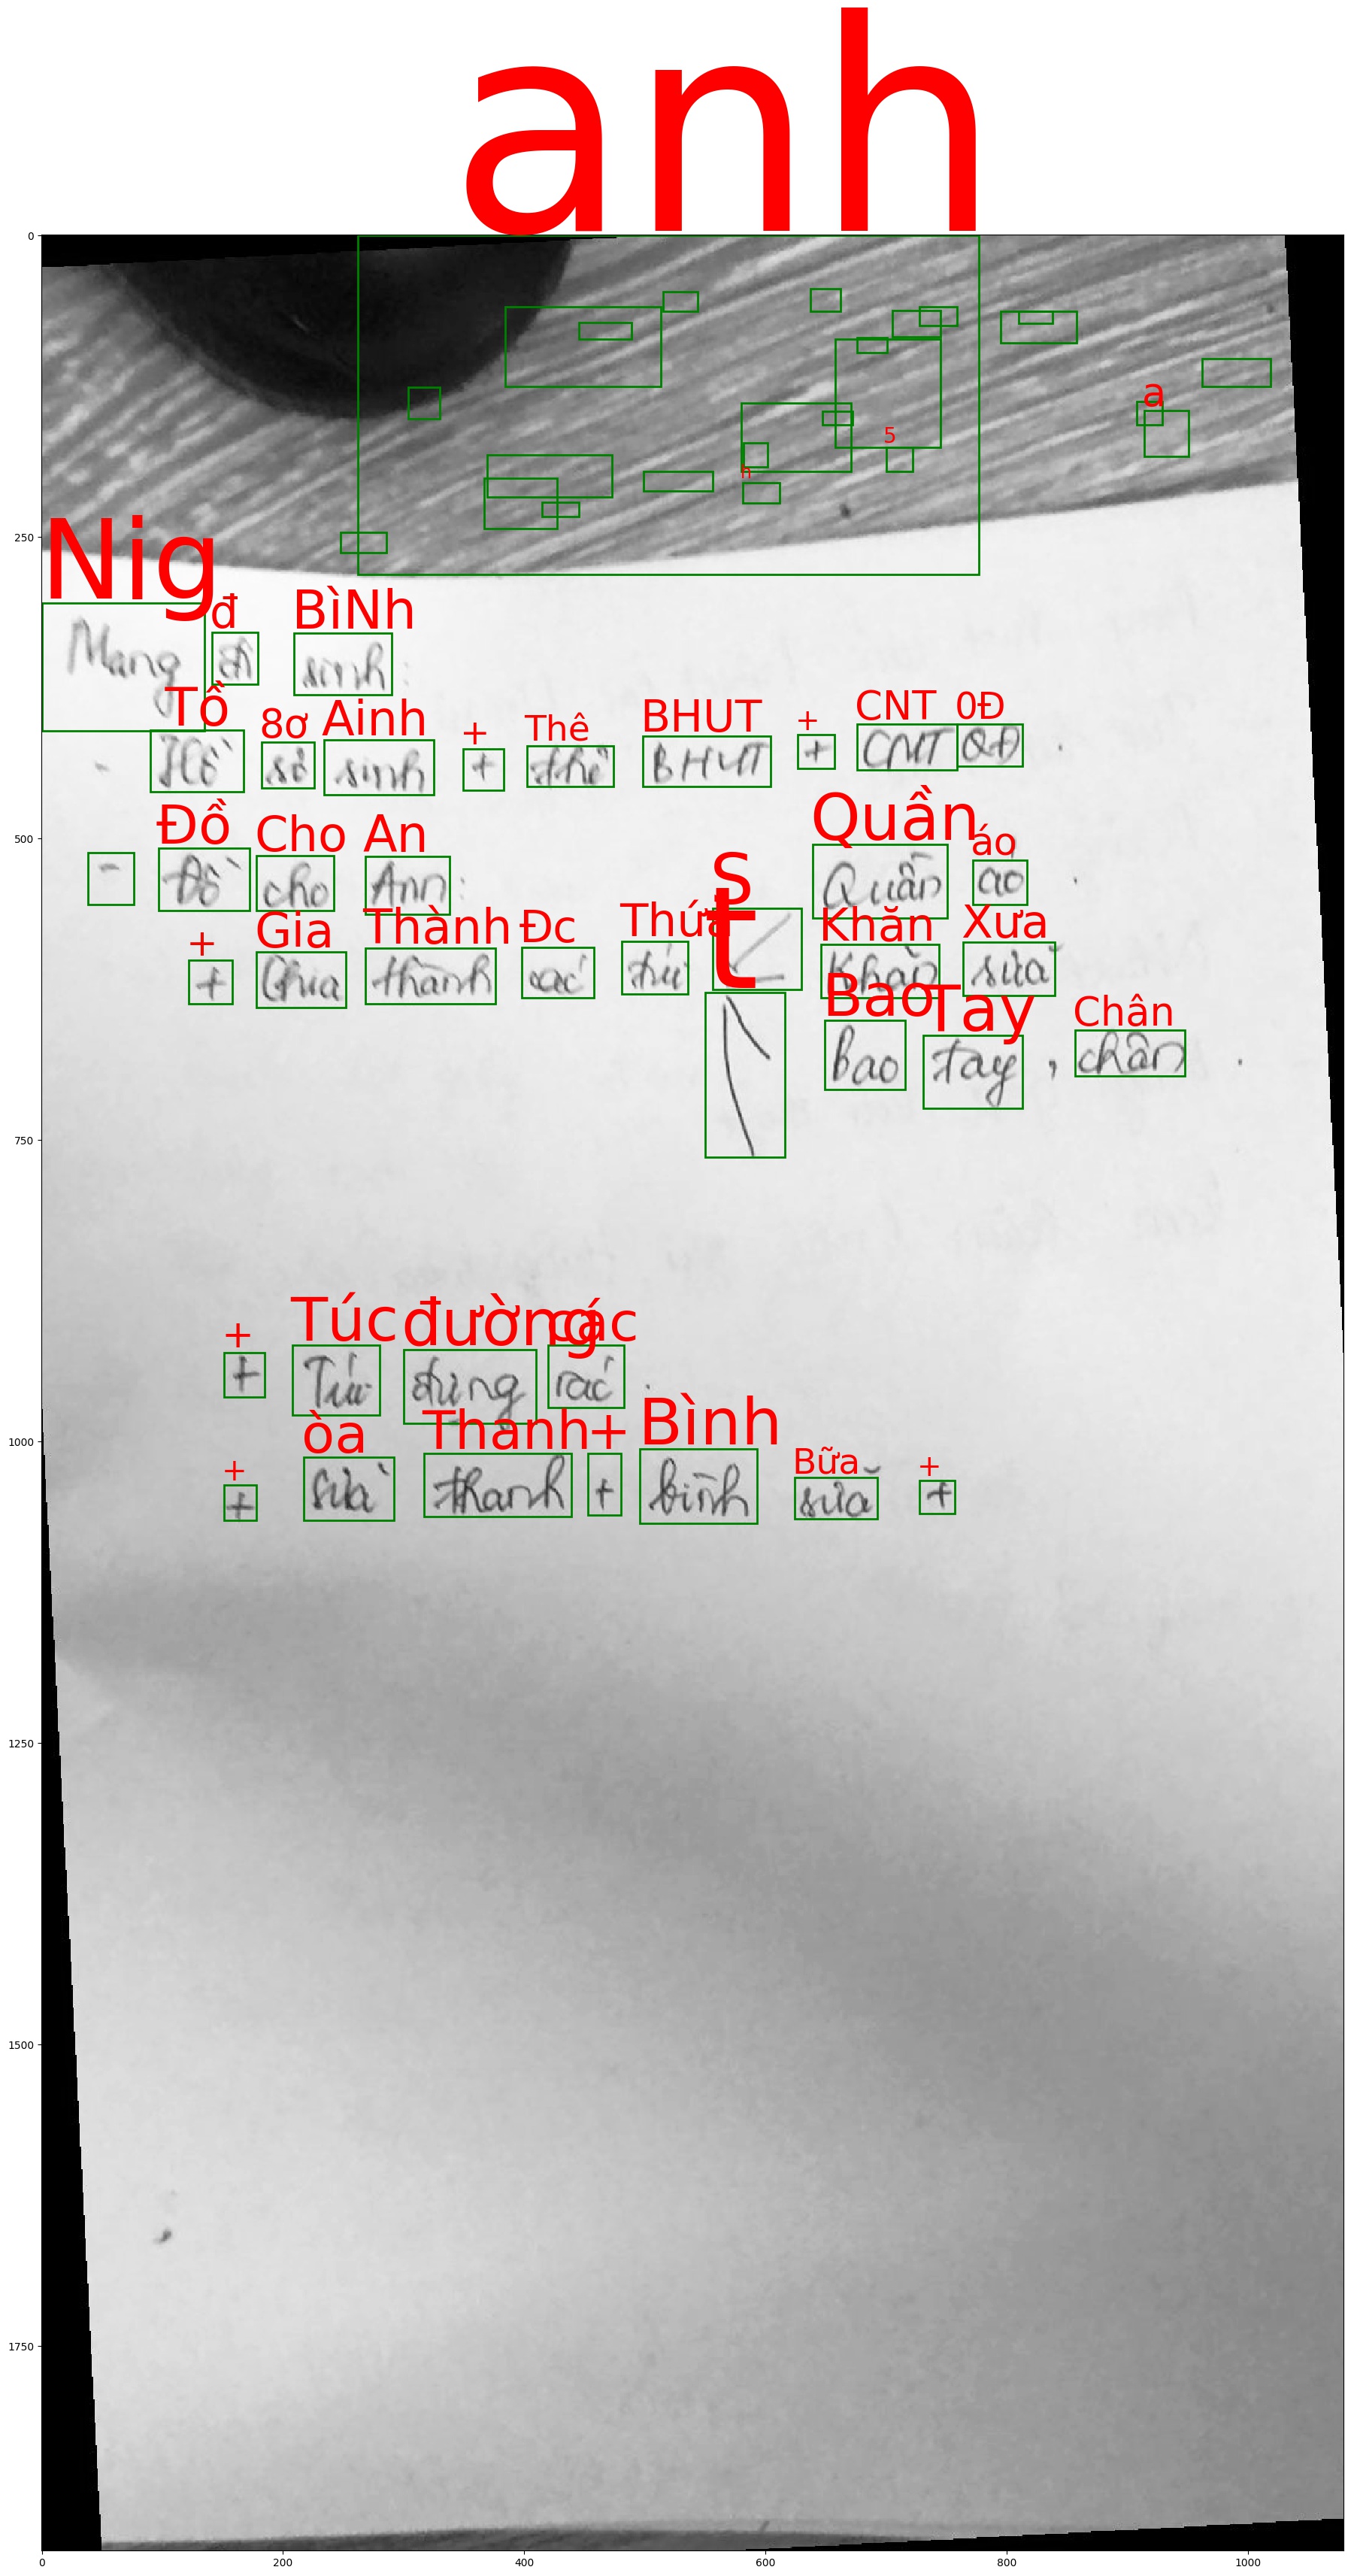 anh
0
a
5
h
250
Nig đ BìNh
Mang đi sinh:
Tồ 8ơ Ainh + Thê BHUT + CNT 0Đ
- Hồ sơ sinh + thẻ BHYT + CMT QĐ.
500
Đồ Cho An Quần áo
- Đồ cho Ann: Quần áo.
+ Gia Thành Đc Thứa s Khăn Xưa
+ Chia thành các túi Khăn sữa
t Bao Tay Chân
Bao tay, chân.
750
+ Túc đường các
+ Túi đựng rác.
1000
+ òa Thanh + Bình Bữa +
+ sữa thanh + bình sữa +
1250
1500
1750
0 200 400 600 800 1000